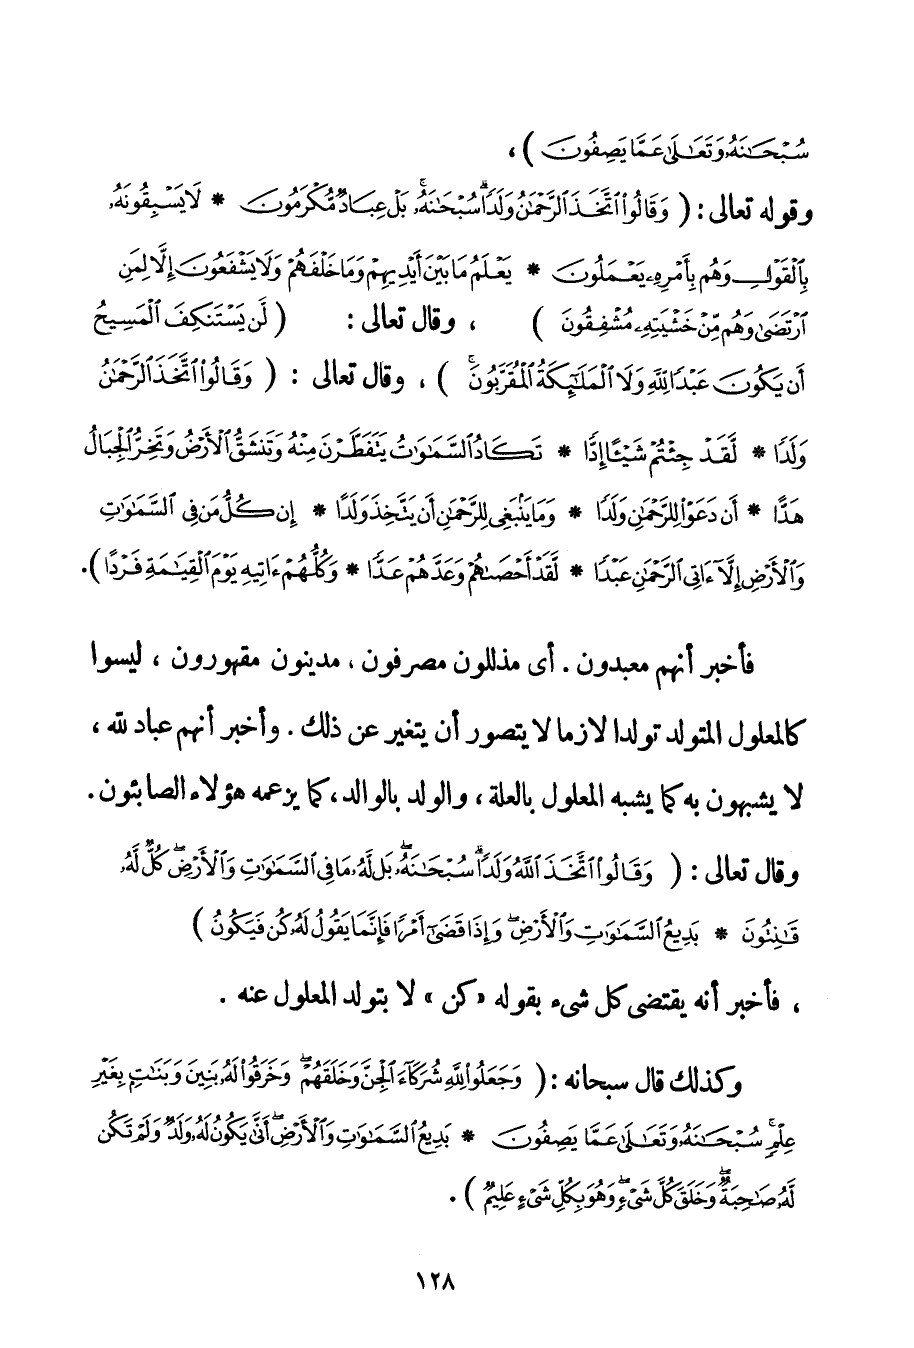 سُبْحَٰنَهُۥ وَتَعَٰلَىٰ عَمَّا يَصِفُونَ ) ،
وقوله تعالى : ( وَقَالُوا۟ ٱتَّخَذَ ٱلرَّحْمَٰنُ وَلَدًا ۗ سُبْحَٰنَهُۥ ۚ بَلْ عِبَادٌ مُّكْرَمُونَ * لَا يَسْبِقُونَهُۥ
بِٱلْقَوْلِ وَهُم بِأَمْرِهِۦ يَعْمَلُونَ * يَعْلَمُ مَا بَيْنَ أَيْدِيهِمْ وَمَا خَلْفَهُمْ وَلَا يَشْفَعُونَ إِلَّا لِمَنِ
ٱرْتَضَىٰ وَهُم مِّنْ خَشْيَتِهِۦ مُشْفِقُونَ ) ، وقال تعالى : ( لَّن يَسْتَنكِفَ ٱلْمَسِيحُ
أَن يَكُونَ عَبْدًا لِّلَّهِ وَلَا ٱلْمَلَٰٓئِكَةُ ٱلْمُقَرَّبُونَ ۚ ) ، وقال تعالى : ( وَقَالُوا۟ ٱتَّخَذَ ٱلرَّحْمَٰنُ
وَلَدًا * لَّقَدْ جِئْتُمْ شَيْـًٔا إِدًّا * تَكَادُ ٱلسَّمَٰوَٰتُ يَتَفَطَّرْنَ مِنْهُ وَتَنشَقُّ ٱلْأَرْضُ وَتَخِرُّ ٱلْجِبَالُ
هَدًّا * أَن دَعَوْا۟ لِلرَّحْمَٰنِ وَلَدًا * وَمَا يَنۢبَغِى لِلرَّحْمَٰنِ أَن يَتَّخِذَ وَلَدًا * إِن كُلُّ مَن فِى ٱلسَّمَٰوَٰتِ
وَٱلْأَرْضِ إِلَّآ ءَاتِى ٱلرَّحْمَٰنِ عَبْدًا * لَّقَدْ أَحْصَىٰهُمْ وَعَدَّهُمْ عَدًّا * وَكُلُّهُمْ ءَاتِيهِ يَوْمَ ٱلْقِيَٰمَةِ فَرْدًا ) .
فأخبر أنهم معبدون . أى مذللون مصرفون ، مدينون مقهورون ، ليسوا
كالمعلول المتولد تولدا لازما لا يتصور أن يتغير عن ذلك . وأخبر أنهم عباد لله ،
لا يشبهون به كما يشبه المعلول بالعلة ، والولد بالوالد ، كما يزعمه هؤلاء الصابئون .
وقال تعالى : ( وَقَالُوا۟ ٱتَّخَذَ ٱللَّهُ وَلَدًا ۗ سُبْحَٰنَهُۥ ۖ بَل لَّهُۥ مَا فِى ٱلسَّمَٰوَٰتِ وَٱلْأَرْضِ ۖ كُلٌّ لَّهُۥ
قَٰنِتُونَ * بَدِيعُ ٱلسَّمَٰوَٰتِ وَٱلْأَرْضِ ۖ وَإِذَا قَضَىٰٓ أَمْرًا فَإِنَّمَا يَقُولُ لَهُۥ كُن فَيَكُونُ )
، فأخبر أنه يقتضى كل شىء بقوله « كن » لا بتولد المعلول عنه .
وكذلك قال سبحانه : ( وَجَعَلُوا۟ لِلَّهِ شُرَكَآءَ ٱلْجِنَّ وَخَلَقَهُمْ ۖ وَخَرَقُوا۟ لَهُۥ بَنِينَ وَبَنَٰتٍۭ بِغَيْرِ
عِلْمٍ ۚ سُبْحَٰنَهُۥ وَتَعَٰلَىٰ عَمَّا يَصِفُونَ * بَدِيعُ ٱلسَّمَٰوَٰتِ وَٱلْأَرْضِ ۖ أَنَّىٰ يَكُونُ لَهُۥ وَلَدٌ وَلَمْ تَكُن
لَّهُۥ صَٰحِبَةٌ ۖ وَخَلَقَ كُلَّ شَىْءٍ ۖ وَهُوَ بِكُلِّ شَىْءٍ عَلِيمٌ ) .
١٢٨